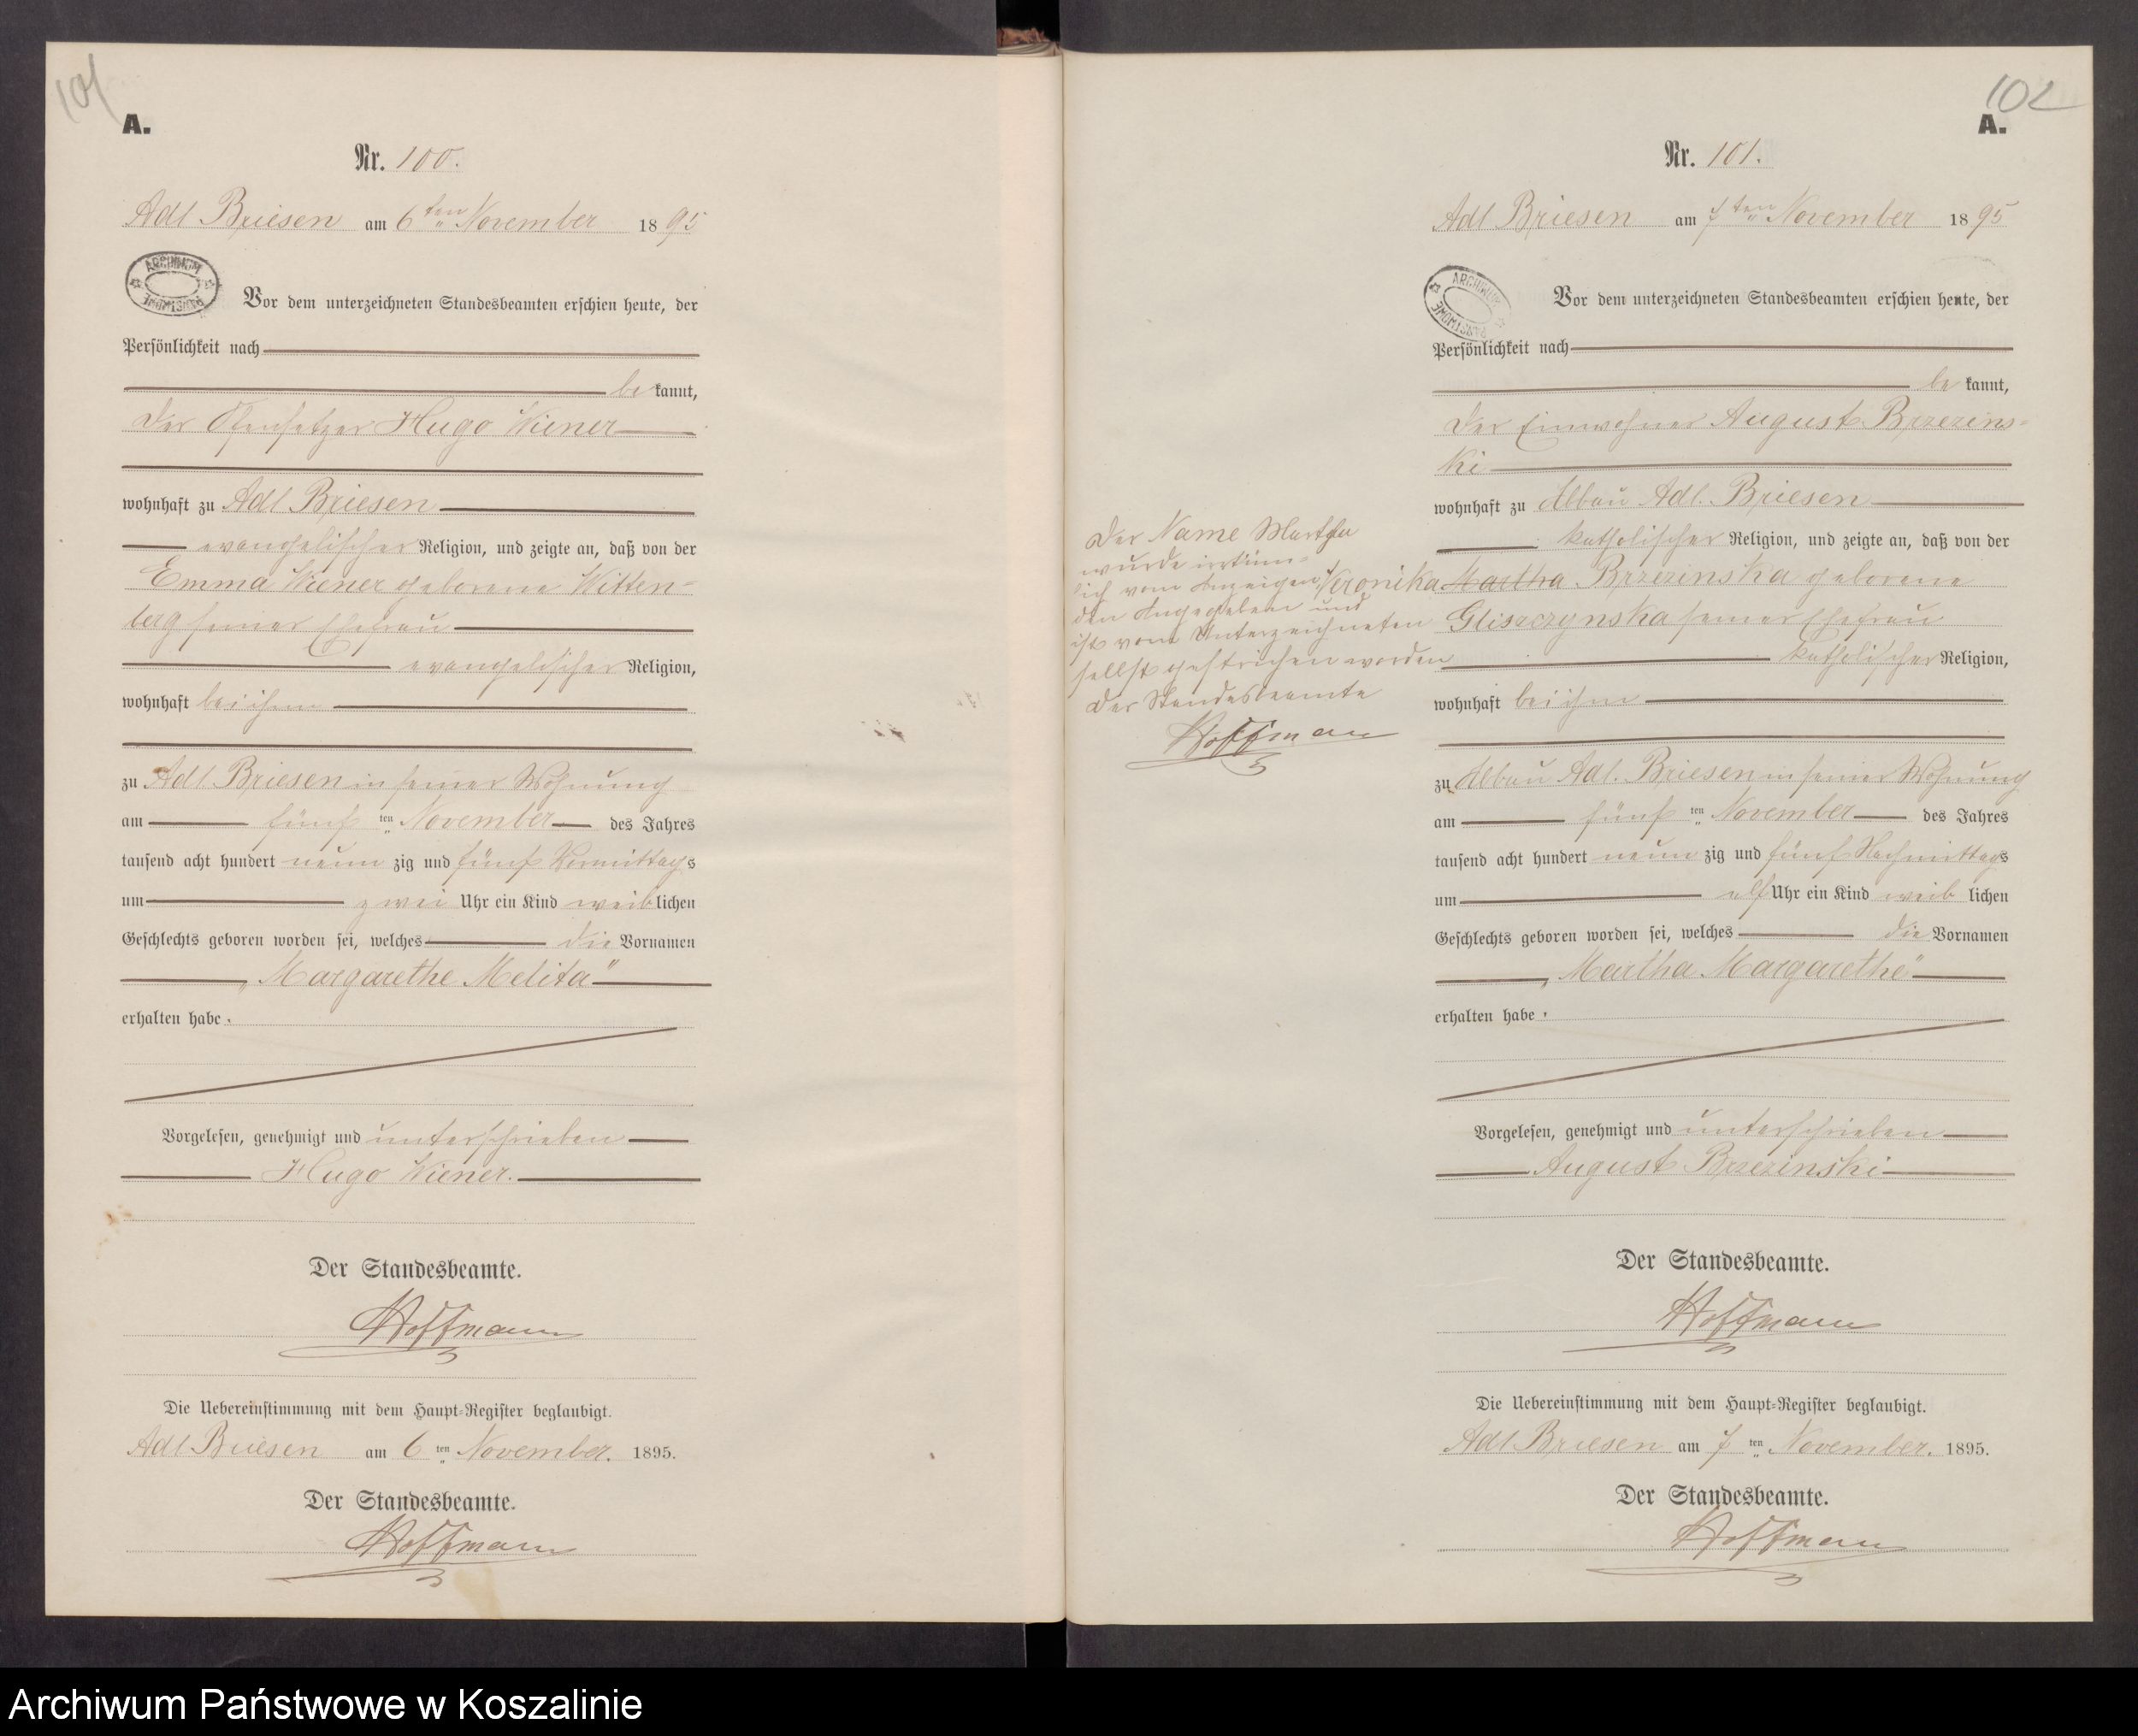 101
A.
Nr. 100.
Adl Briesen am 6ten November 1895
ARCHIWUM PAŃSTWOWE
Vor dem unterzeichneten Standesbeamten erschien heute, der
Persönlichkeit nach
be kannt,
der Ofensetzer Hugo Wiener
wohnhaft zu Adl Briesen
evangelischer Religion, und zeigte an, daß von der
Emma Wiener geborene Witten-
berg seiner Ehefrau
evangelischer Religion,
wohnhaft bei ihm
zu Adl. Briesen in seiner Wohnung
am fünf ten November des Jahres
tausend acht hundert neun zig und fünf Vormittags
um zwei Uhr ein Kind weiblichen
Geschlechts geboren worden sei, welches die Vornamen
„Margarethe Melita"
erhalten habe.
Vorgelesen, genehmigt und unterschrieben
Hugo Wiener.
Der Standesbeamte.
Hoffmann
Die Uebereinstimmung mit dem Haupt-Register beglaubigt.
Adl Briesen am 6 ten November. 1895.
Der Standesbeamte.
Hoffmann
102
A.
Nr. 101.
Adl Briesen am 7ten November 1895
ARCHIWUM PAŃSTWOWE
Vor dem unterzeichneten Standesbeamten erschien heute, der
Persönlichkeit nach
be kannt,
der Einwohner August Brzezins-
ki
wohnhaft zu Abbau Adl. Briesen
katholischer Religion, und zeigte an, daß von der
Veronika Martha Brzezinska geborene
Gliszczynska seiner Ehefrau
katholischer Religion,
wohnhaft bei ihm
zu Abbau Adl. Briesen in seiner Wohnung
am fünf ten November des Jahres
tausend acht hundert neun zig und fünf Nachmittags
um elf Uhr ein Kind weib lichen
Geschlechts geboren worden sei, welches die Vornamen
„Martha Margarethe"
erhalten habe.
Vorgelesen, genehmigt und unterschrieben
August Brzezinski
Der Standesbeamte.
Hoffmann
Die Uebereinstimmung mit dem Haupt-Register beglaubigt.
Adl Briesen am 7 ten November. 1895.
Der Standesbeamte.
Hoffmann
Der Name Martha
wurde irrtüm-
lich vom Anzeigen-
den angegeben und
ist vom Unterzeichneten
selbst gestrichen worden
Der Standesbeamte
Hoffmann
Archiwum Państwowe w Koszalinie